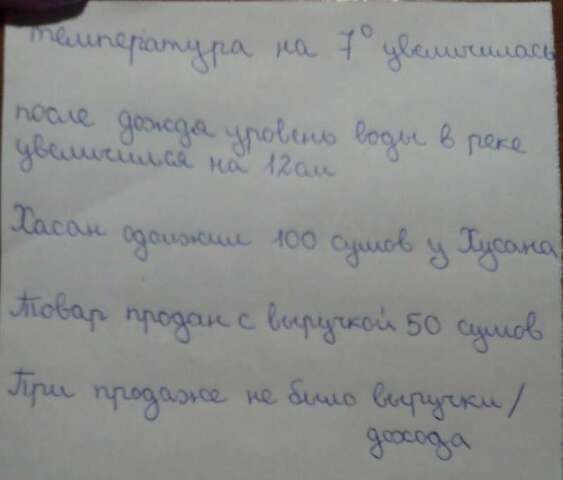 температура на 7° увеличилась
после дождя уровень воды в реке
увеличился на 12см
Хасан одолжил 100 сумов у Хусана
Товар продан с выручкой 50 сумов
При продаже не было выручки/
дохода